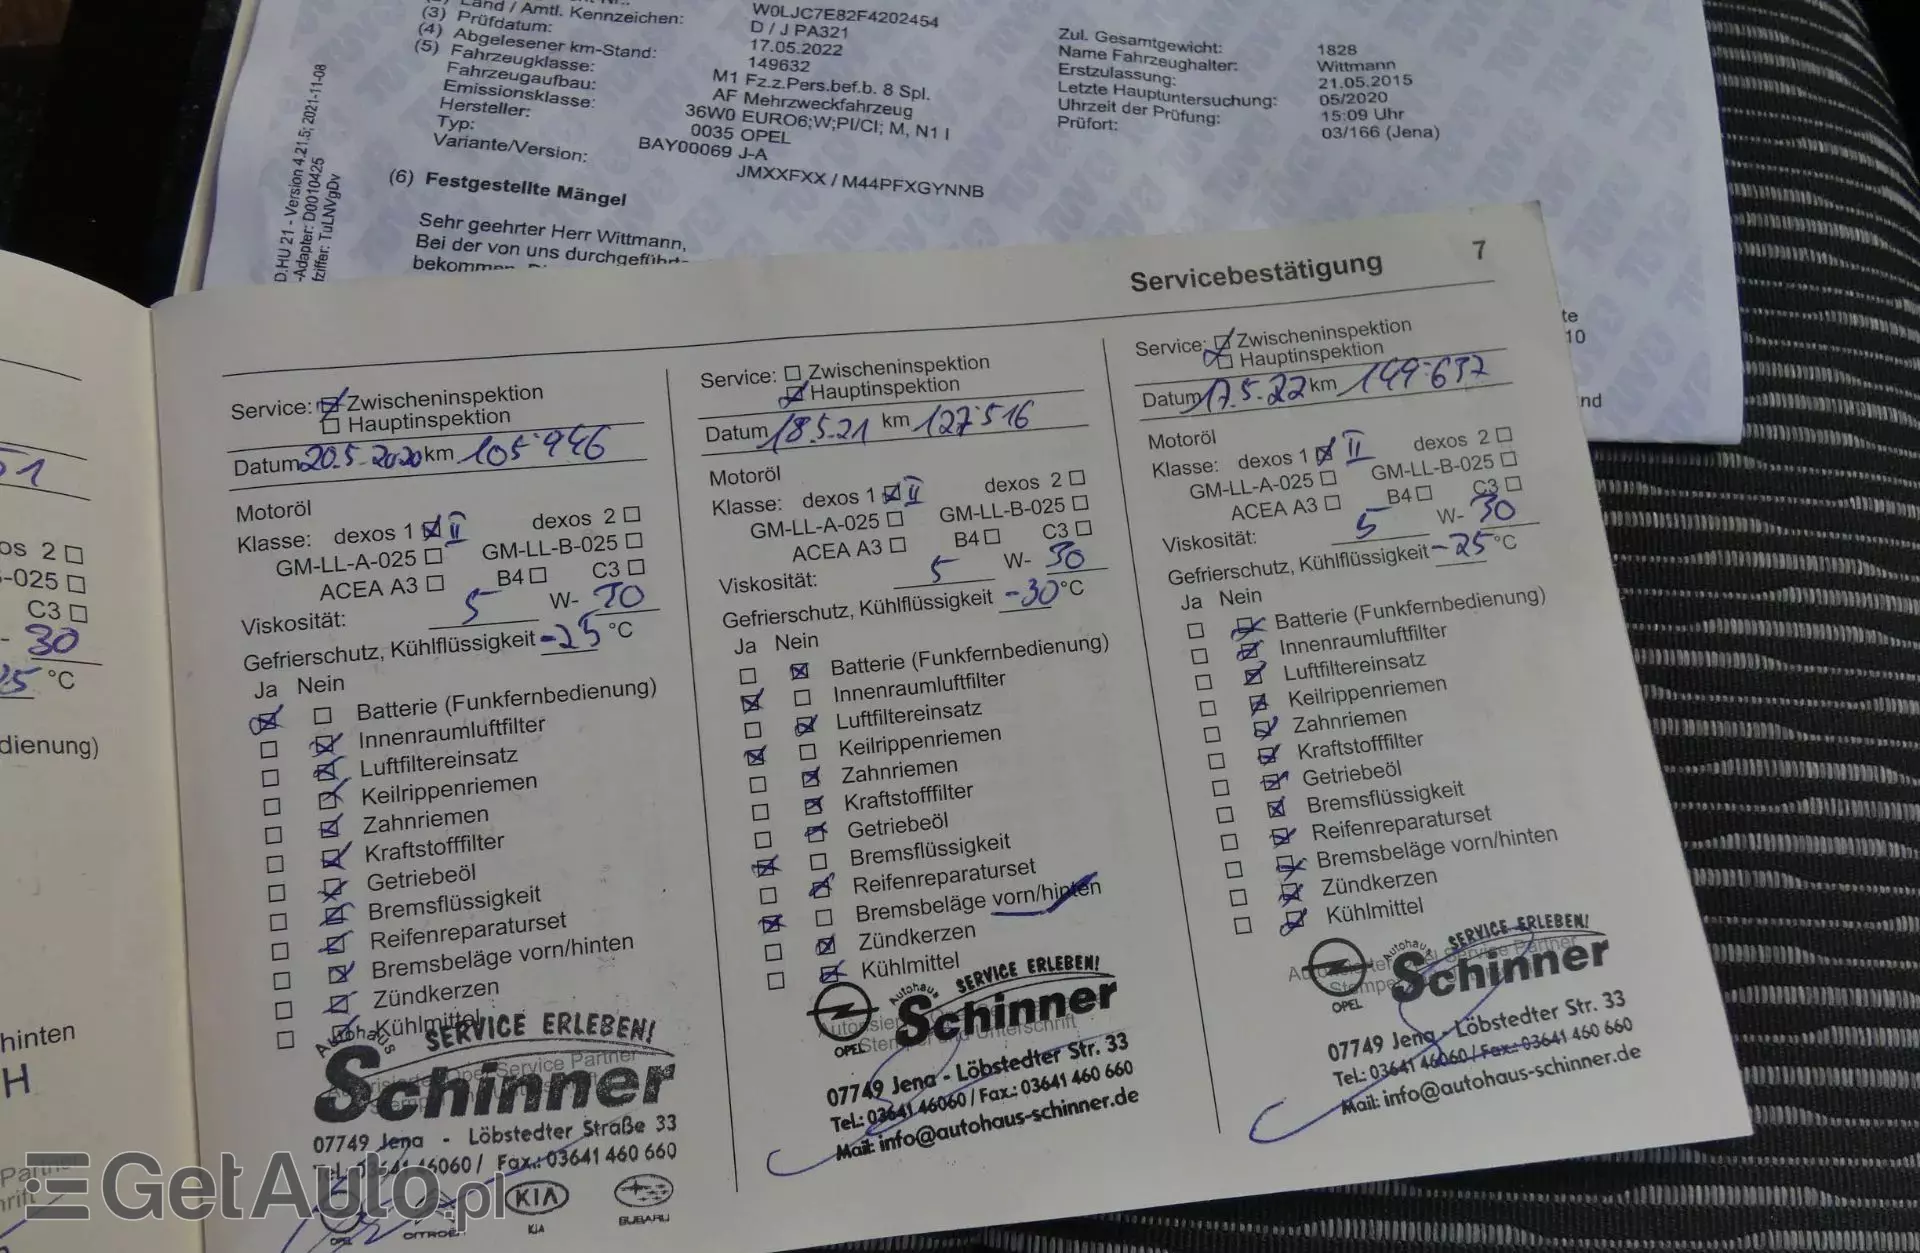 Land / Amtl. Kennzeichen:
W0LJC7E82F4202454
(3) Prüfdatum:
D / J PA321
(4) Abgelesener km-Stand:
17.05.2022
(5) Fahrzeugklasse:
149632
Fahrzeugaufbau:
M1 Fz.z.Pers.bef.b. 8 Spl.
Emissionsklasse:
AF Mehrzweckfahrzeug
Hersteller:
36W0 EURO6;W;PI/CI; M, N1 I
Typ:
0035 OPEL
Variante/Version:
BAY00069 J-A
JMXXFXX / M44PFXGYNNB
Zul. Gesamtgewicht: 1828
Name Fahrzeughalter: Wittmann
Erstzulassung: 21.05.2015
Letzte Hauptuntersuchung: 05/2020
Uhrzeit der Prüfung: 15:09 Uhr
Prüfort: 03/166 (Jena)
(6) Festgestellte Mängel
Sehr geehrter Herr Wittmann,
Bei der von uns durchgeführte
bekommen
D.HU 21 - Version 4.21.5; 2021-11-08
-Adapter: D0010425
fziffer: TuLNVgDv
te
10
nd
51
os 2
-025
C3
- 30
25 °C
dienung)
hinten
H
Partner
rift
Servicebestätigung 7
Service: Zwischeninspektion
Hauptinspektion
Datum 20.5.2020 km 105.946
Motoröl
Klasse: dexos 1 II dexos 2
GM-LL-A-025 GM-LL-B-025
ACEA A3 B4 C3
Viskosität: 5 W- 30
Gefrierschutz, Kühlflüssigkeit -25 °C
Ja Nein
Batterie (Funkfernbedienung)
Innenraumluftfilter
Luftfiltereinsatz
Keilrippenriemen
Zahnriemen
Kraftstofffilter
Getriebeöl
Bremsflüssigkeit
Reifenreparaturset
Bremsbeläge vorn/hinten
Zündkerzen
Kühlmittel
Autohaus SERVICE ERLEBEN!
Schinner
07749 Jena - Löbstedter Straße 33
Tel.: 03641 46060 / Fax.: 03641 460 660
OPEL CITROËN KIA KIA SUBARU
Service: Zwischeninspektion
Hauptinspektion
Datum 18.5.21 km 127.516
Motoröl
Klasse: dexos 1 II dexos 2
GM-LL-A-025 GM-LL-B-025
ACEA A3 B4 C3
Viskosität: 5 W- 30
Gefrierschutz, Kühlflüssigkeit -30 °C
Ja Nein
Batterie (Funkfernbedienung)
Innenraumluftfilter
Luftfiltereinsatz
Keilrippenriemen
Zahnriemen
Kraftstofffilter
Getriebeöl
Bremsflüssigkeit
Reifenreparaturset
Bremsbeläge vorn/hinten
Zündkerzen
Kühlmittel
Autohaus SERVICE ERLEBEN!
Schinner
OPEL Stempel und Unterschrift
07749 Jena - Löbstedter Str. 33
Tel.: 03641 46060 / Fax.: 03641 460 660
Mail: info@autohaus-schinner.de
Service: Zwischeninspektion
Hauptinspektion
Datum 17.5.22 km 149.632
Motoröl
Klasse: dexos 1 II dexos 2
GM-LL-A-025 GM-LL-B-025
ACEA A3 B4 C3
Viskosität: 5 W- 30
Gefrierschutz, Kühlflüssigkeit -25 °C
Ja Nein
Batterie (Funkfernbedienung)
Innenraumluftfilter
Luftfiltereinsatz
Keilrippenriemen
Zahnriemen
Kraftstofffilter
Getriebeöl
Bremsflüssigkeit
Reifenreparaturset
Bremsbeläge vorn/hinten
Zündkerzen
Kühlmittel
Autohaus SERVICE ERLEBEN!
Schinner
OPEL
07749 Jena - Löbstedter Str. 33
Tel.: 03641 46060 / Fax.: 03641 460 660
Mail: info@autohaus-schinner.de
GetAuto.pl